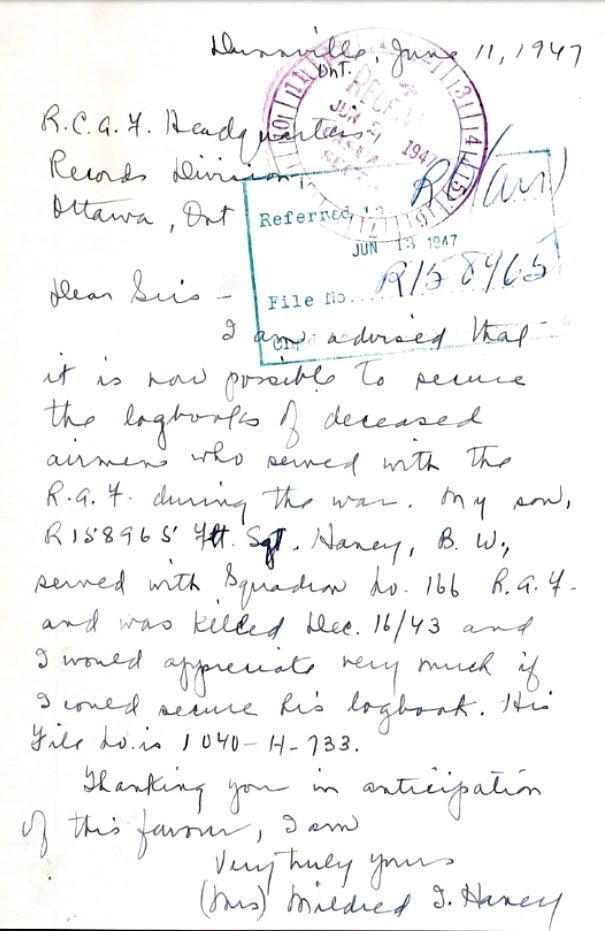 Dunnville, June 11, 1947
Ont.
R.C.A.F. Headquarters
Records Division
Ottawa, Ont
RECEIVED
JUN
1947
Referred to
JUN 13 1947
File No.... R158965
Dear Sirs -
I am advised that
it is now possible to secure
the logbooks of deceased
airmen who served with the
R.A.F. during the war. My son,
R158965 Flt. Sgt. Haney, B. W.,
served with Squadron No. 166 R.A.F.
and was killed Dec. 16/43 and
I would appreciate very much if
I could secure his logbook. His
File No. is 1040-H-733.
Thanking you in anticipation
of this favour, I am
Very truly yours
(Mrs) Mildred I. Haney